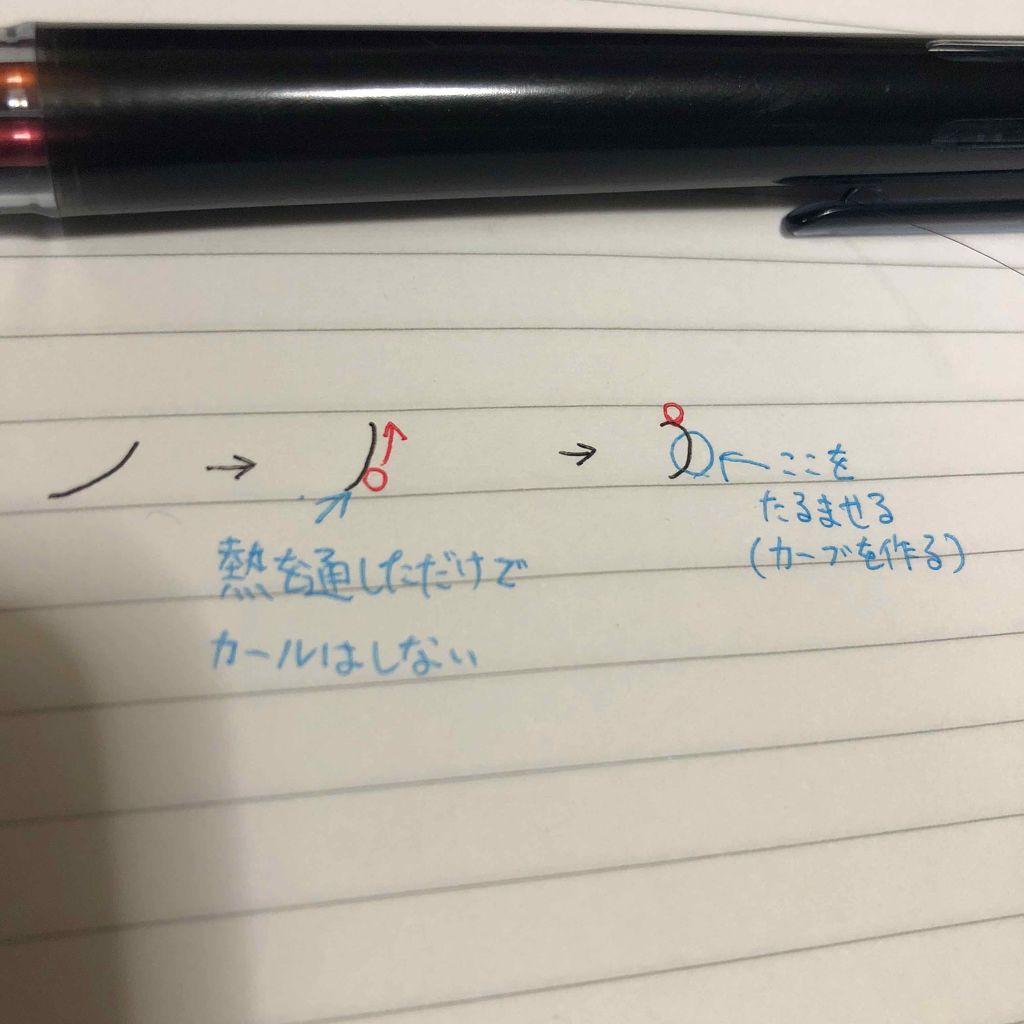 熱を通しただけで
カールはしない
ここを
たるませる
(カーブを作る)